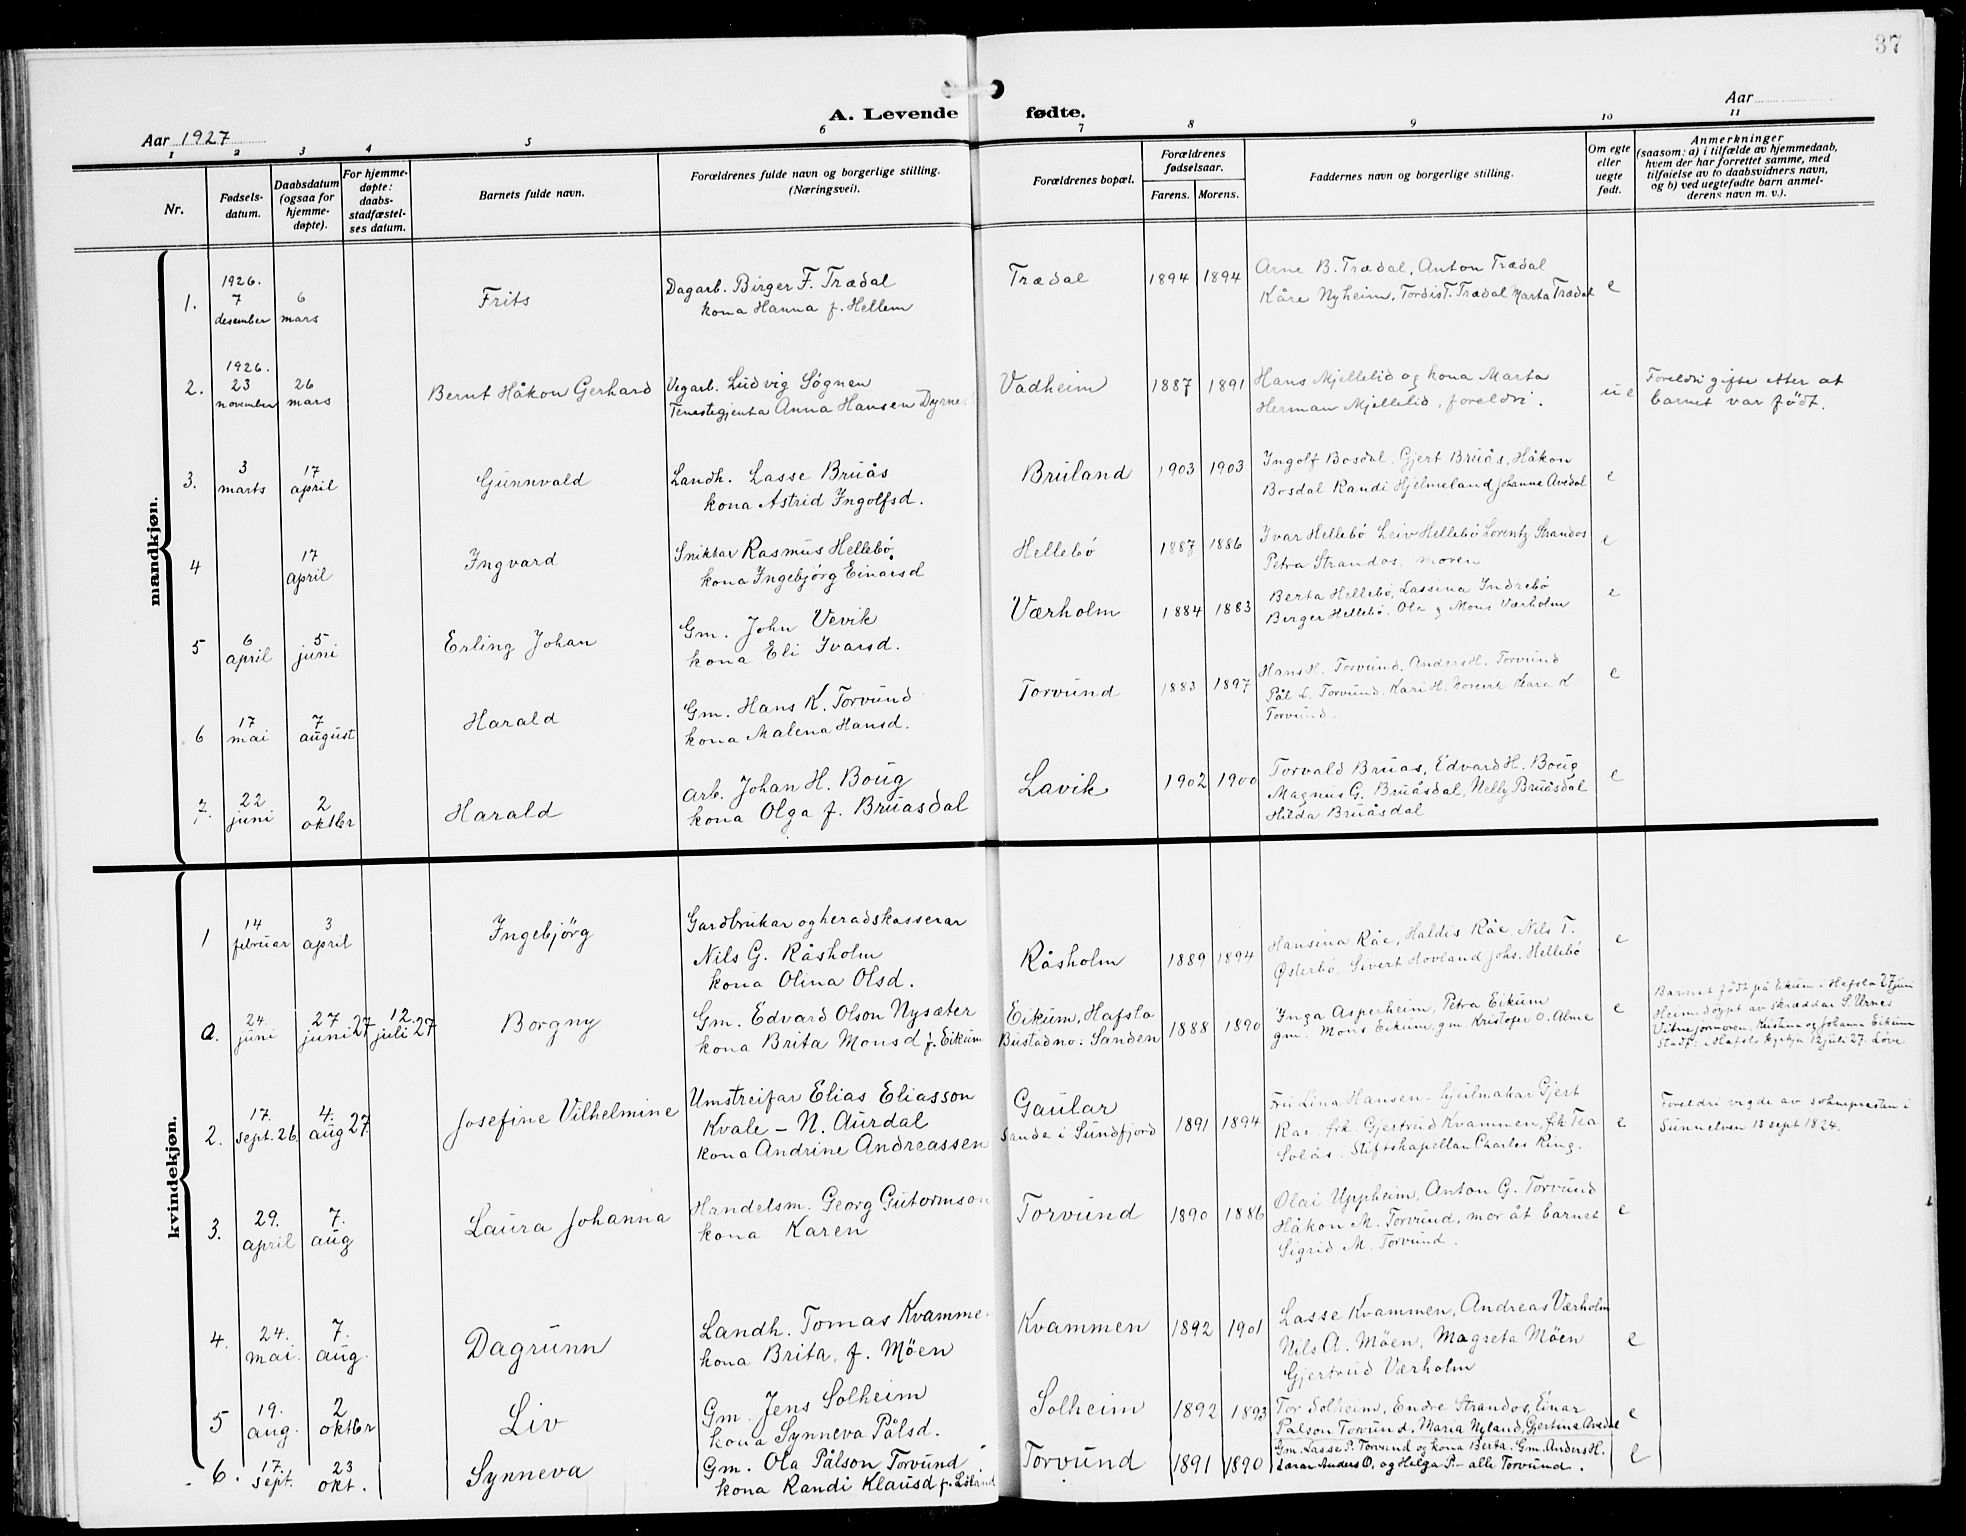 37
A. Levende fødte.
Aar 1927
Aar
1 2 3 4 5 6 7 8 9 10 11
Nr.
Fødsels-
datum.
Daabsdatum
(ogsaa for
hjemme-
døpte).
For hjemme-
døpte:
daabs-
stadfæstel-
ses datum.
Barnets fulde navn.
Forældrenes fulde navn og borgerlige stilling.
(Næringsvei).
Forældrenes bopæl.
Forældrenes
fødselsaar.
Farens. Morens.
Faddernes navn og borgerlige stilling.
Om egte
eller
uegte
født.
Anmerkninger
(saasom: a) i tilfælde av hjemmedaab,
hvem der har forrettet samme, med
tilføielse av to daabsvidners navn,
og b) ved uegtefødte barn anmel-
derens navn m. v.).
mandkjøn.
1.
1926.
7
desember
6
mars
Frits
Dagarb. Birger F. Trædal
kona Hanna f. Hellem
Trædal
1894 1894
Arne B. Trædal, Anton Trædal
Kåre Nyheim, Tordis T. Trædal Marta Trædal
e
2.
1926.
23
november
26
mars
Bernt Håkon Gerhard
Vegarb. Ludvig Søgnen
Tenestegjenta Anna Hansen Dyrnes
Vadheim
1887 1891
Hans Mjellelid og kona Marta
Herman Mjellelid, foreldri.
u e
Foreldri gifte etter at
barnet var födt.
3.
3
marts
17
april
Gunnvald
Landh. Lasse Bruås
kona Astrid Ingolfsd.
Bruland
1903 1903
Ingolf Bosdal, Gjert Bruås, Håkon
Bosdal Randi Hjelmeland Johanne Avedal
e
4
17
april
Ingvard
Snikkar Rasmus Hellebø
kona Ingebjørg Einarsd
Hellebø
1887 1886
Ivar Hellebø Leiv Hellebø Lorentz Strandos
Petra Strandos, moren
e
5
6
april
5
juni
Erling Johan
Gm. John Vevik
kona Eli Ivarsd.
Værholm
1884 1883
Berta Hellebø, Lassina Indrebø
Birger Hellebø. Ola og Mons Værholm
e
6
17
mai
7
august
Harald
Gm. Hans K. Torvund
kona Malena Hansd.
Torvund
1883 1897
Hans H. Torvund, Anders H. Torvund
Pål L. Torvund. Kari H. Klara K
Torvund.
e
7.
22
juni
2
oktbr
Harald
Arb. Johan H. Boug
kona Olga f. Bruåsdal
Lavik
1902 1900
Torvald Bruås, Edvard H. Boug
Magnus G. Bruåsdal, Nelly Bruåsdal
Hilda Bruåsdal
e
kvindekjøn.
1
14
februar
3
april
Ingebjörg
Gardbrukar og heradskasserar
Nils G. Råsholm
kona Olina Olsd.
Råsholm
1889 1894
Hansina Råe, Haldis Råe, Nils T.
Østerbø, Sivert Hovland Johs. Hellebø
e
a.
24.
juni
27
juni 27
12.
juli 27
Borgny
Gm. Edvard Olson Nysæter
kona Brita Monsd f. Eikum
Eikum, Hafslo
Bustad no: Sanden
1888 1890
Inga Asperheim, Petra Eikum
gm. Mons Eikum, gm. Kristofer O. Alme
e
Barnet født på Eikum i Hafslo 27 juni
Heimedöypt av skræddar S. Urnes
Vitne jormoren, Kristina og Johanna Eikum
Stadf: i Hafslo kyrkja 12 juli 27. Love
2.
17.
sept. 26
4.
aug 27.
Josefine Vilhelmine
Umstreifar Elias Eliasson
Kvale - N. Aurdal
kona Andrine Andreassen
Gaular
Sande i Sundfjord
1891 1894
Fru Lina Hansen - hjulmakar Gjert
frk. Gjertrud Kvammen, frk Tea
Solås. Stiftskapellan Charles Ring.
e
Foreldri vigde av sokneprasten i
Sunnelven 13 sept 1824.
3.
29.
april
7.
aug
Laura Johanna
Handelsm. Georg Gutormson
kona Karen
Torvund
1890 1886
Olai Uppheim, Anton G. Torvund
Håkon M. Torvund, mor åt barnet
Sigrid M. Torvund.
e
4.
24.
mai.
7.
aug.
Dagrunn
Landh. Tomas Kvammen
kona Brita, f. Möen
Kvammen
1892 1901
Lasse Kvammen, Andreas Værholm
Nils A. Möen, Magreta Möen
Gjertrud Værholm
e
5
19.
aug.
2
oktbr
Liv
Gm. Jens Solheim
kona Synneva Pålsd.
Solheim
1892 1893
Tor Solheim, Endre Strandos, Einar
Palson Torvund, Maria Nyland, Gjertina Avedal
e
6.
17.
sept.
23
okt.
Synneva
Gm. Ola Pålson Torvund
kona Randi Klausd f. Löland
Torvund
1891 1890
Gm. Lasse P. Torvund og kona Berta. Gm. Anders H.
Lærar Anders O. og Helga P. - alle Torvund.
e